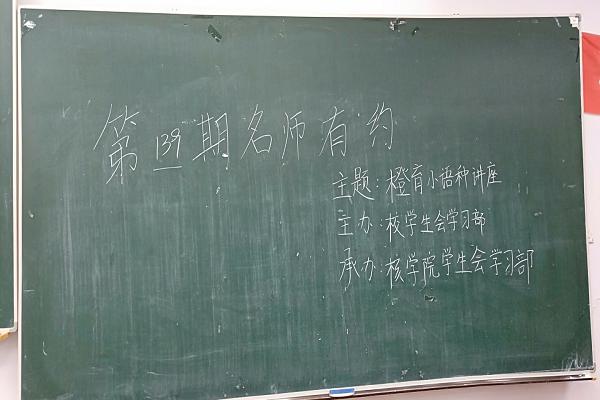 第139期名师有约
主题:橙育小语种讲座
主办:校学生会学习部
承办:核学院学生会学习部